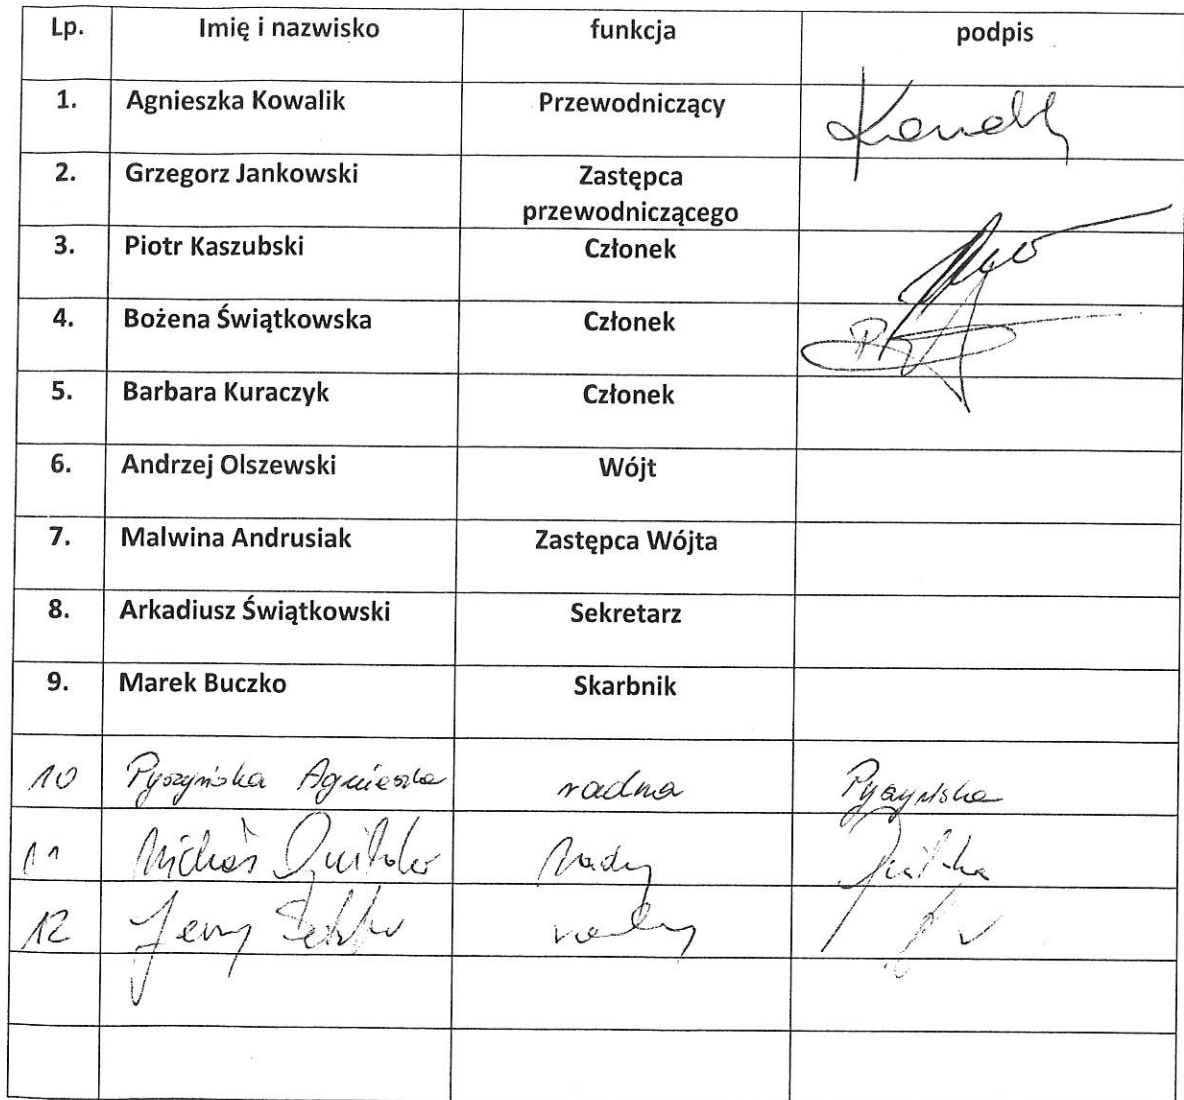 Lp. Imię i nazwisko funkcja podpis
1. Agnieszka Kowalik Przewodniczący
2. Grzegorz Jankowski Zastępca
przewodniczącego
3. Piotr Kaszubski Członek
4. Bożena Świątkowska Członek
5. Barbara Kuraczyk Członek
6. Andrzej Olszewski Wójt
7. Malwina Andrusiak Zastępca Wójta
8. Arkadiusz Świątkowski Sekretarz
9. Marek Buczko Skarbnik
10 Pyszyńska Agnieszka radna Pyszyńska
11 Michał radny
12 Jerzy radny